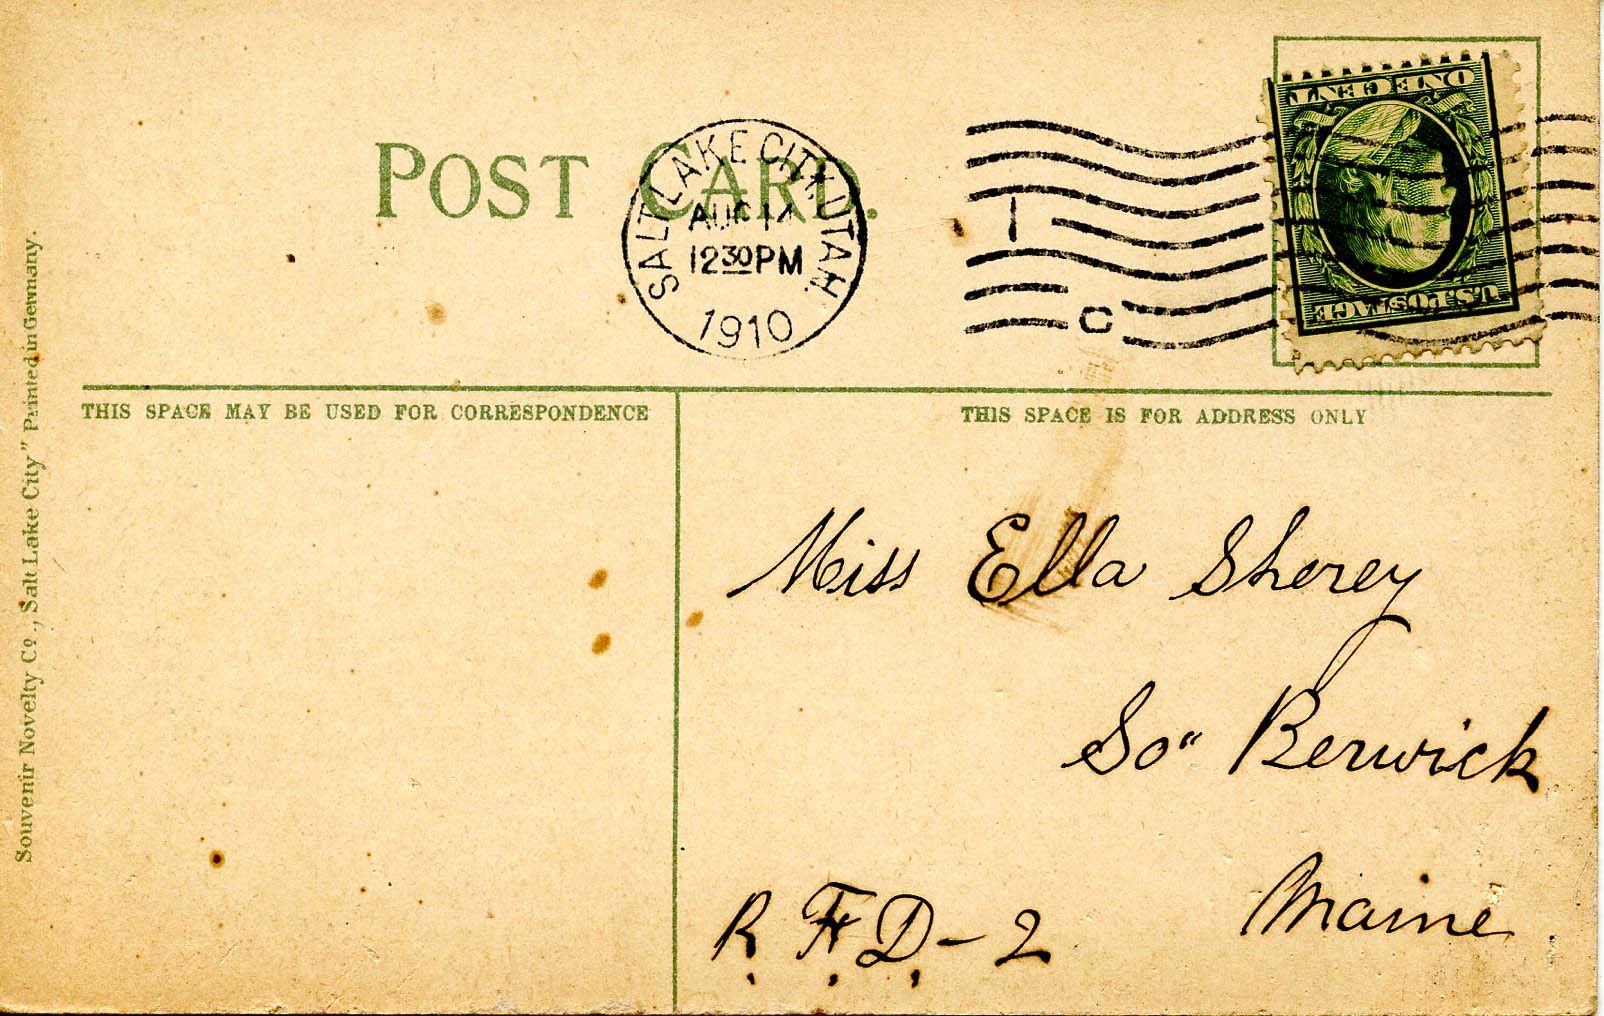 POST CARD.
SALT LAKE CITY, UTAH
AUG 14
12 30 PM
1910
1
C
ONE CENT
U.S. POSTAGE
THIS SPACE MAY BE USED FOR CORRESPONDENCE
THIS SPACE IS FOR ADDRESS ONLY
Miss Ella Shorey
So" Berwick
Maine
R. F. D. - 2
Souvenir Novelty Co., Salt Lake City" Printed in Germany.